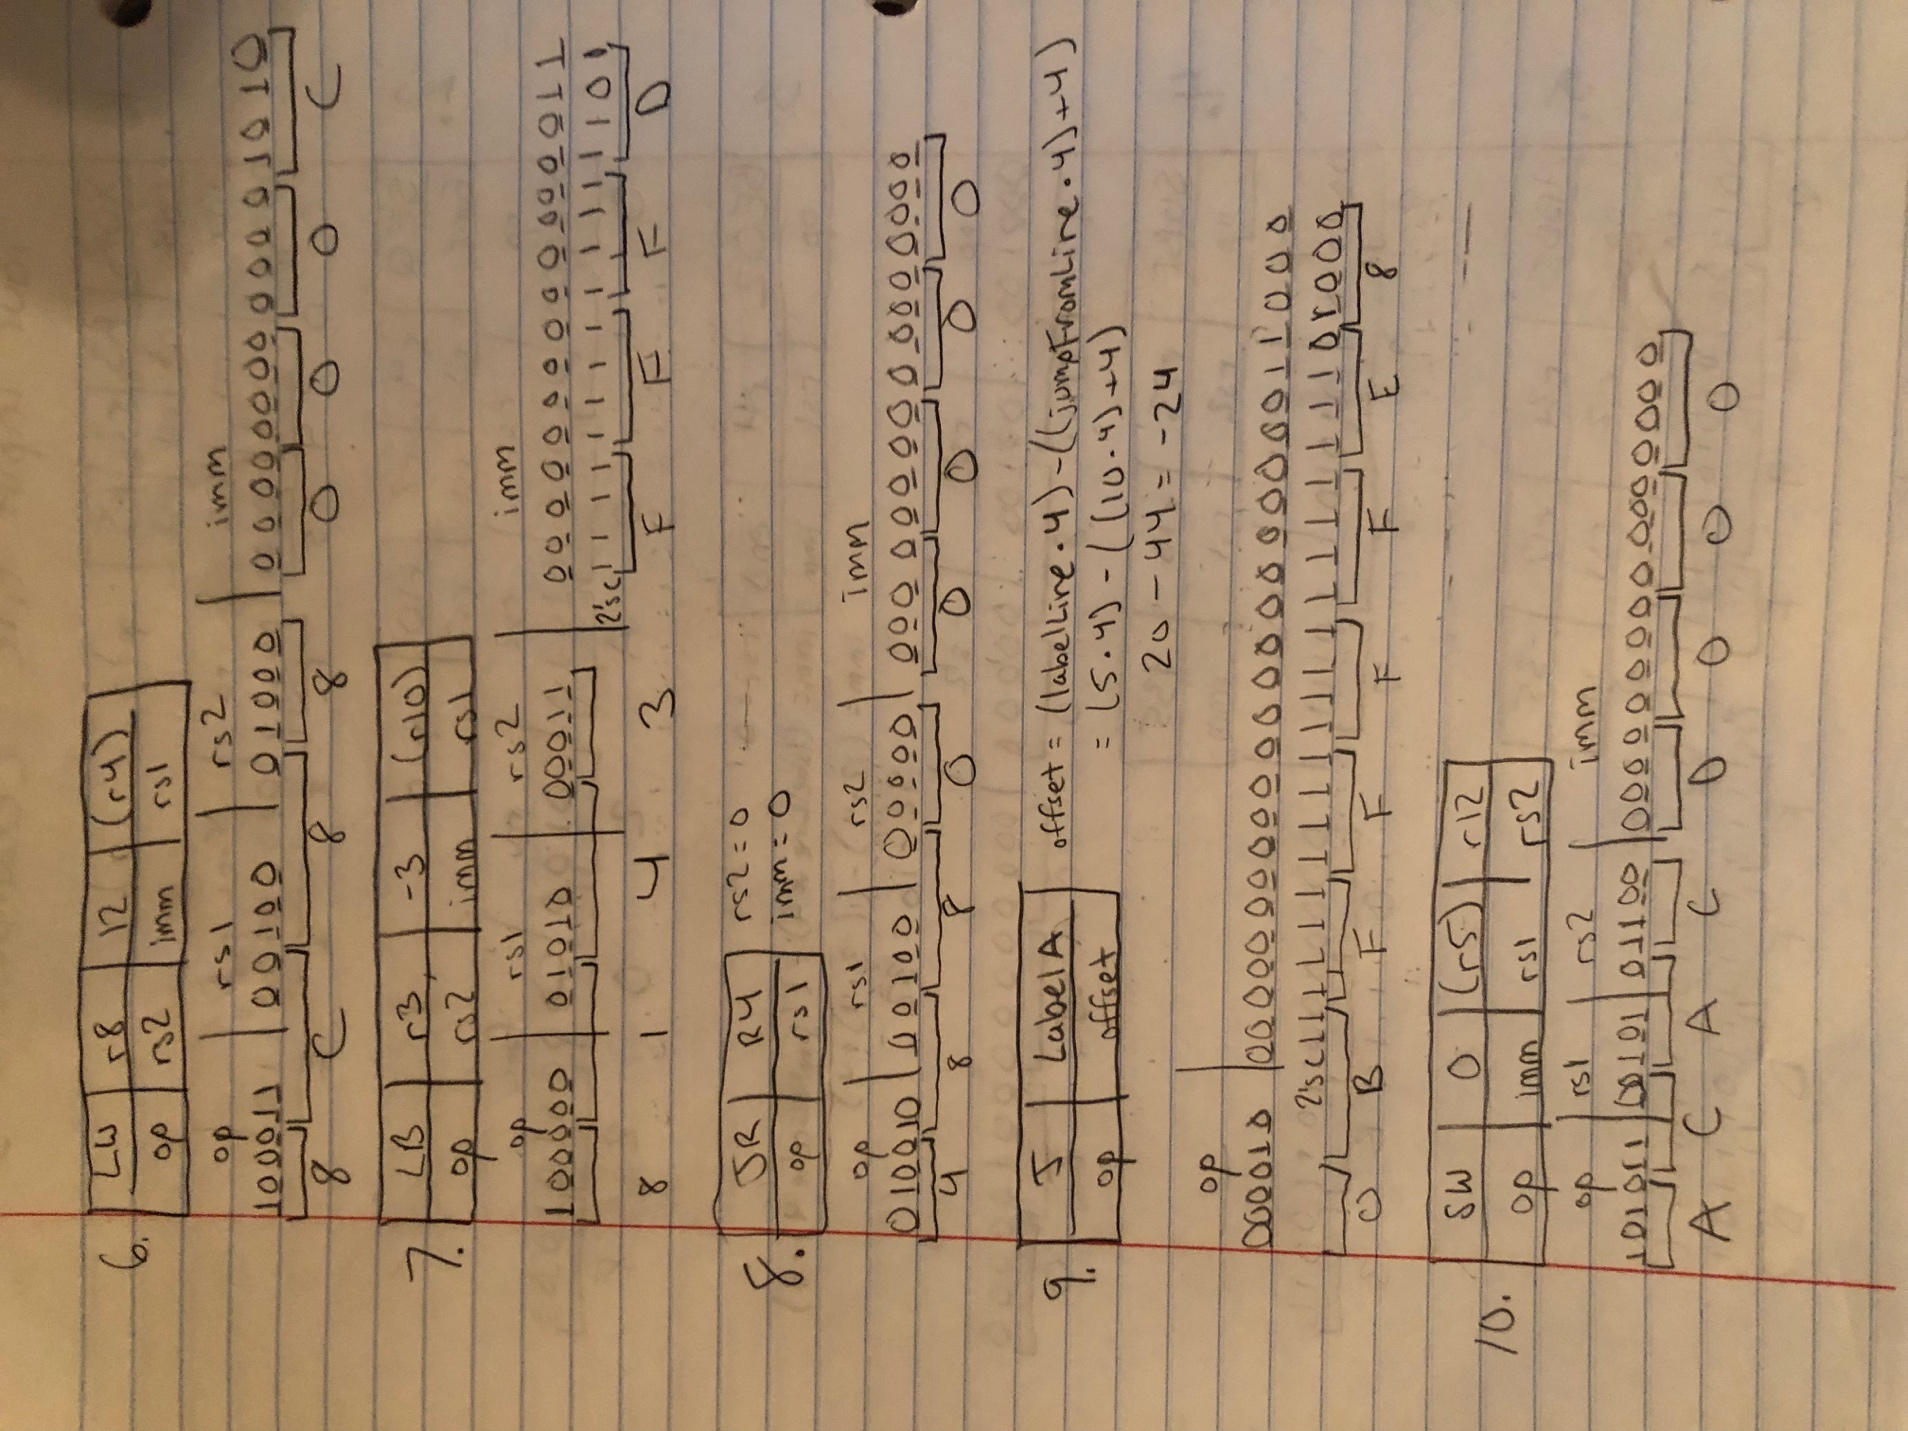 6. LW r8 12 (r4)
op rs2 imm rs1
op rs1 rs2 imm
100011 00100 01000 0000000000001010
8 C 8 8 0 0 0 C
7. LB r3, -3 (r10)
op rs2 imm rs1
op rs1 rs2 imm
100000 01010 00011 0000000000001011
2'sC 1111111111111101
8 1 4 3 F F F D
8. JR R4 rs2=0
op rs1 imm=0
op rs1 rs2 imm
010010 00100 00000 0000000000000000
4 8 8 0 0 0 0 0
9. J LabelA offset = (labelLine·4)-((jumpFromLine·4)+4)
op offset = (5·4)-((10·4)+4)
20-44=-24
op
000010 00000000000000000000011000
2'sC 11111111111111111111101000
0 B F F F F E 8
10. SW 0 (r5) r12
op imm rs1 rs2
op rs1 rs2 imm
101011 00101 01100 0000000000000000
A C A C 0 0 0 0